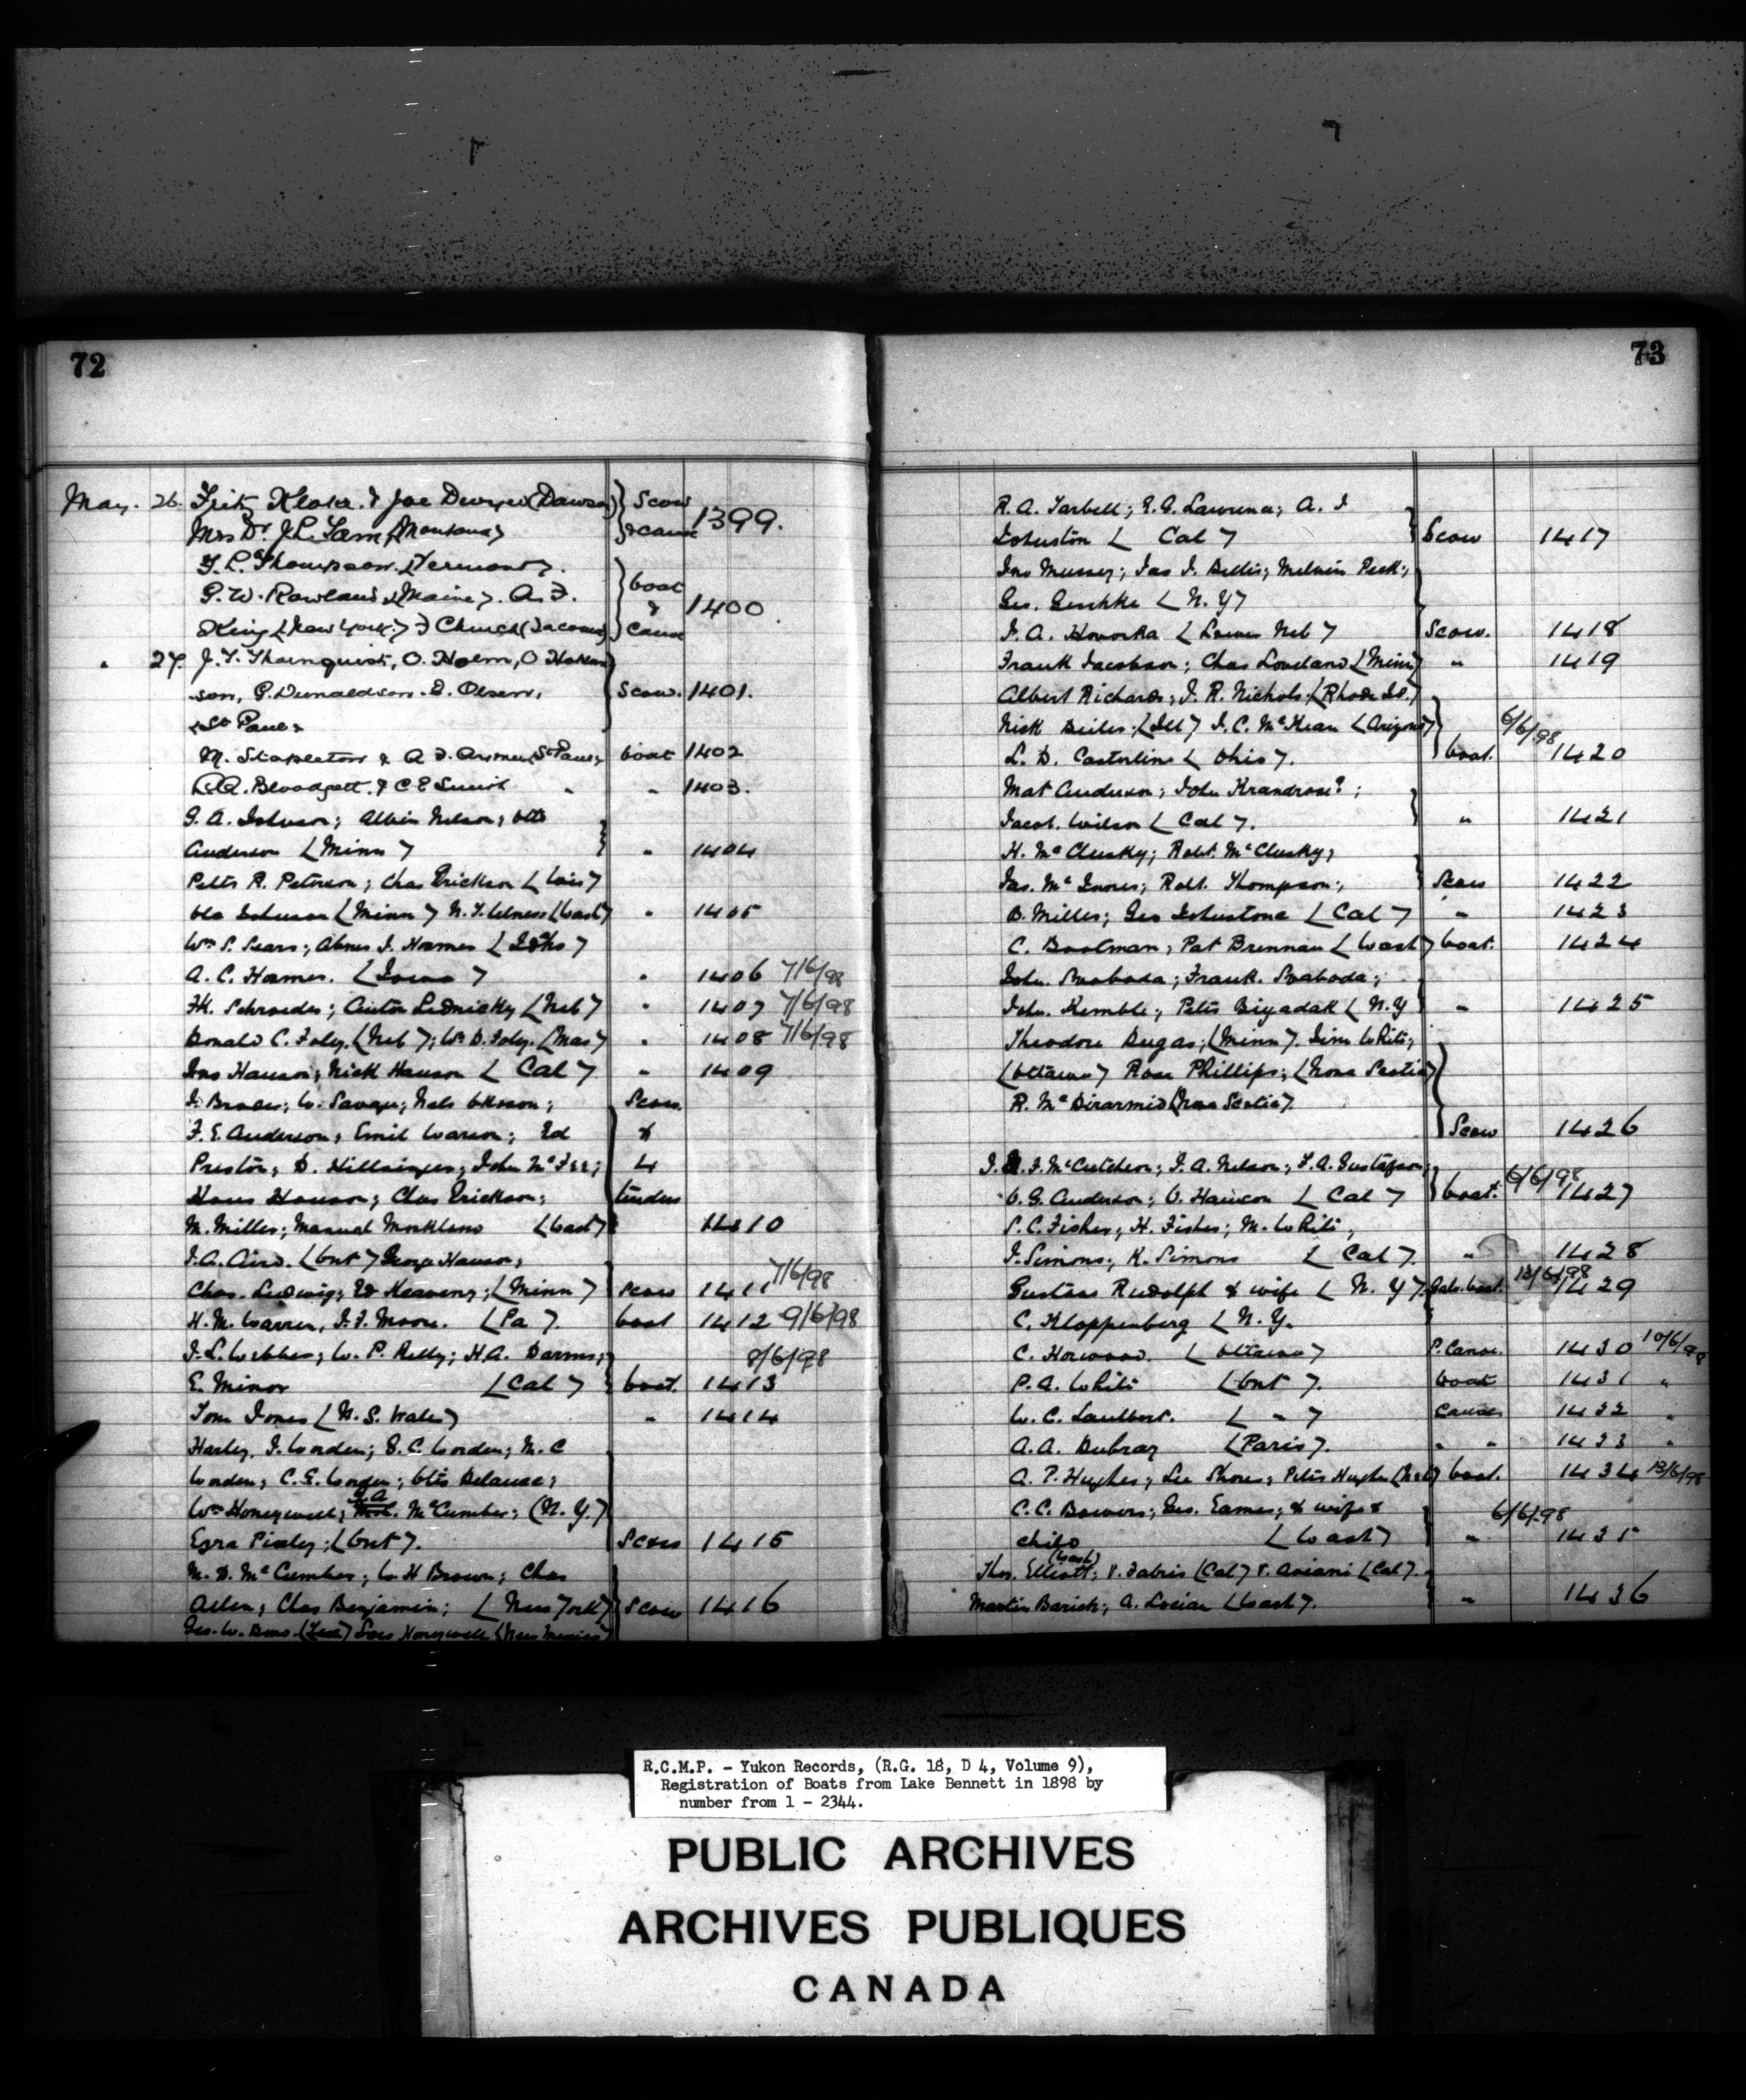 72
May. 26. Fritz Kloke & Joe Dwyer (Dawson) Scow
Mrs Dr J.L. Lam (Montana) & canoe 1399.
F.L. Thompson (Vermont).
G.W. Rowland (Maine). A.F. boat & 1400
King (New York) F Church (Tacoma) Canoe
" 27. J.T. Thornquist, O. Holm, O Hokan
son, G. Donaldson. E. Olsen, Scow. 1401.
(St Paul)
M. Stapleton & A F. (St Paul) boat 1402
A.A. Blodgett & C E Smith " " 1403.
G. A. Johnson; Albin Nelson; Otto
Anderson (Minn) " 1404
Peter R. Peterson; Chas Erickson (Wis)
Ole Johnson (Minn) (Wash) " 1405
Wm S. Sears; Abner J. Homes (Idho)
A. C. Homes. (Iowa) " 1406 7/6/98
Fk. Schroeder; Anton Lednicky (Neb) " 1407 7/6/98
Donald C. Foley. (Neb); Wm D. Foley. (Mas) " 1408 7/6/98
Jno Hanson; Nick Hanson (Cal) " 1409
W. Savage; Nels Scow.
F. E. Anderson; Emil Larson; Ed &
Preston; D. Hillsinger; John McFee; 4
Hans Hanson; Chas Erickson; tenders
M. Miller; Manuel (Wash) 1410
J. A. Aird. (Ont) George Hanson;
Chas. Ludwig; Ed Keaveny; (Minn) Scow 1411 7/6/98
H. M. Warren, J. F. Moore. (Pa). boat 1412 9/6/98
J. L. Webber; W. P. Kelly; H. A. 8/6/98
E. Minor (Cal) boat. 1413
Tom Jones (N. S. Wales) " 1414
Harley. J. Worden; S. C. Worden; M. C
Worden; C. E. Worden; Otis
J A
Wm Honeywell; McCumber; (N. Y.)
Ezra Pixley; (Ont). Scow 1415
M. D. McCumber; W. H Brown; Chas
Allen; Chas Benjamin; (New York) Scow 1416
Geo. W. Honeywell (New Mexico)
73
R. A. Tarbell; E. G. Lawrence; A. J
Johnston (Cal) Scow 1417
Jno Musser; Jas J. Bellis; Melvin Peck;
Geo. Geschke (N. Y)
F. A. Hovorka (Neb) Scow. 1418
Frank Jacobson; Chas Loveland (Minn) " 1419
Albert Richards; J. R. Nichols; (Rhode Id.)
Nick Beiles; (Ill) J. C. McKean (Arizona) 6/6/98
L. D. Casterline (Ohio). boat. 1420
Mat Anderson; John Krandrose?;
Jacob. Wilson (Cal). " 1421
H. McClusky; Robt. McClusky;
Jas. McInnes; Robt. Thompson; Scow 1422
B. Miller; Geo Johnstone (Cal) " 1423
C. Bootman; Pat Brennan (Wash) boat. 1424
John. Svoboda; Frank. Svoboda;
John. Kemble; Peter Biyadak (N. Y " 1425
Theodore Dugas; (Minn). Jim White;
(Ottawa) Rose Phillips; (Nova Scotia)
R. McDirarmid (Nova Scotia).
Scow 1426
J. F. McCutcheon; J. A. Nelson; F. A. Gustafson;
O. G. Anderson; O. (Cal) boat. 6/6/98 1427
S. C. Fisher; H. Fisher; M. White;
J. Simons; K. Simons (Cal). " 1428
Gustave Rudolph & wife (N. Y). boat. 13/6/98 1429
C. Kloppenberg (N. Y.
C. Horwood. (Ottawa) P. Canoe. 1430 10/6/98
P. A. White (Ont). boat 1431 "
W. C. (") Canoe 1432 "
A. A. Dubray (Paris). " " 1433 "
A. P. Hughes; Lee Shores; Peter Hughes (Neb) boat. 1434 13/6/98
C. C. Bowers; Geo. Eames; & wife & 6/6/98
child (Wash) " 1435
(Wash)
Thos. Elliott; V. Fabris (Cal) V. Aviani (Cal).
Martin Barich; A. Locian (Wash). " 1436
R.C.M.P. - Yukon Records, (R.G. 18, D 4, Volume 9),
Registration of Boats from Lake Bennett in 1898 by
number from 1 - 2344.
PUBLIC ARCHIVES
ARCHIVES PUBLIQUES
CANADA